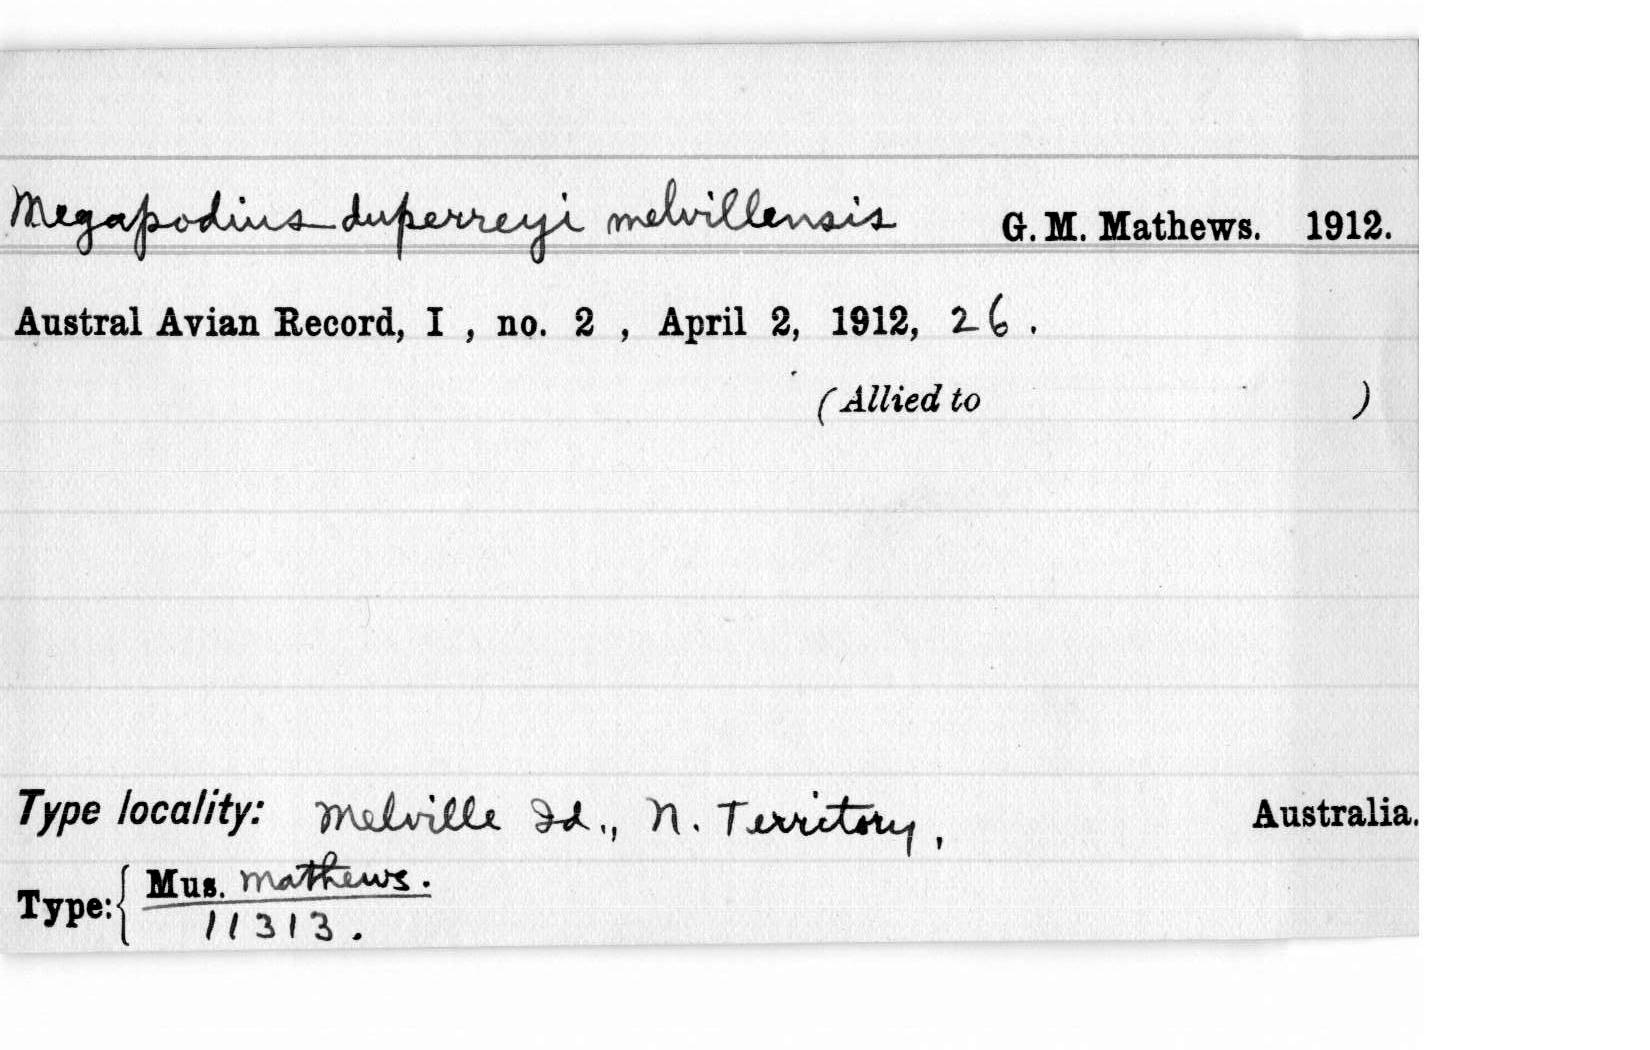 Megapodius duperreyi melvillensis G. M. Mathews. 1912.
Austral Avian Record, I , no. 2 , April 2, 1912, 26 .
(Allied to )
Type locality: Melville Id., N. Territory, Australia.
Type: { Mus. Mathews.
11313.